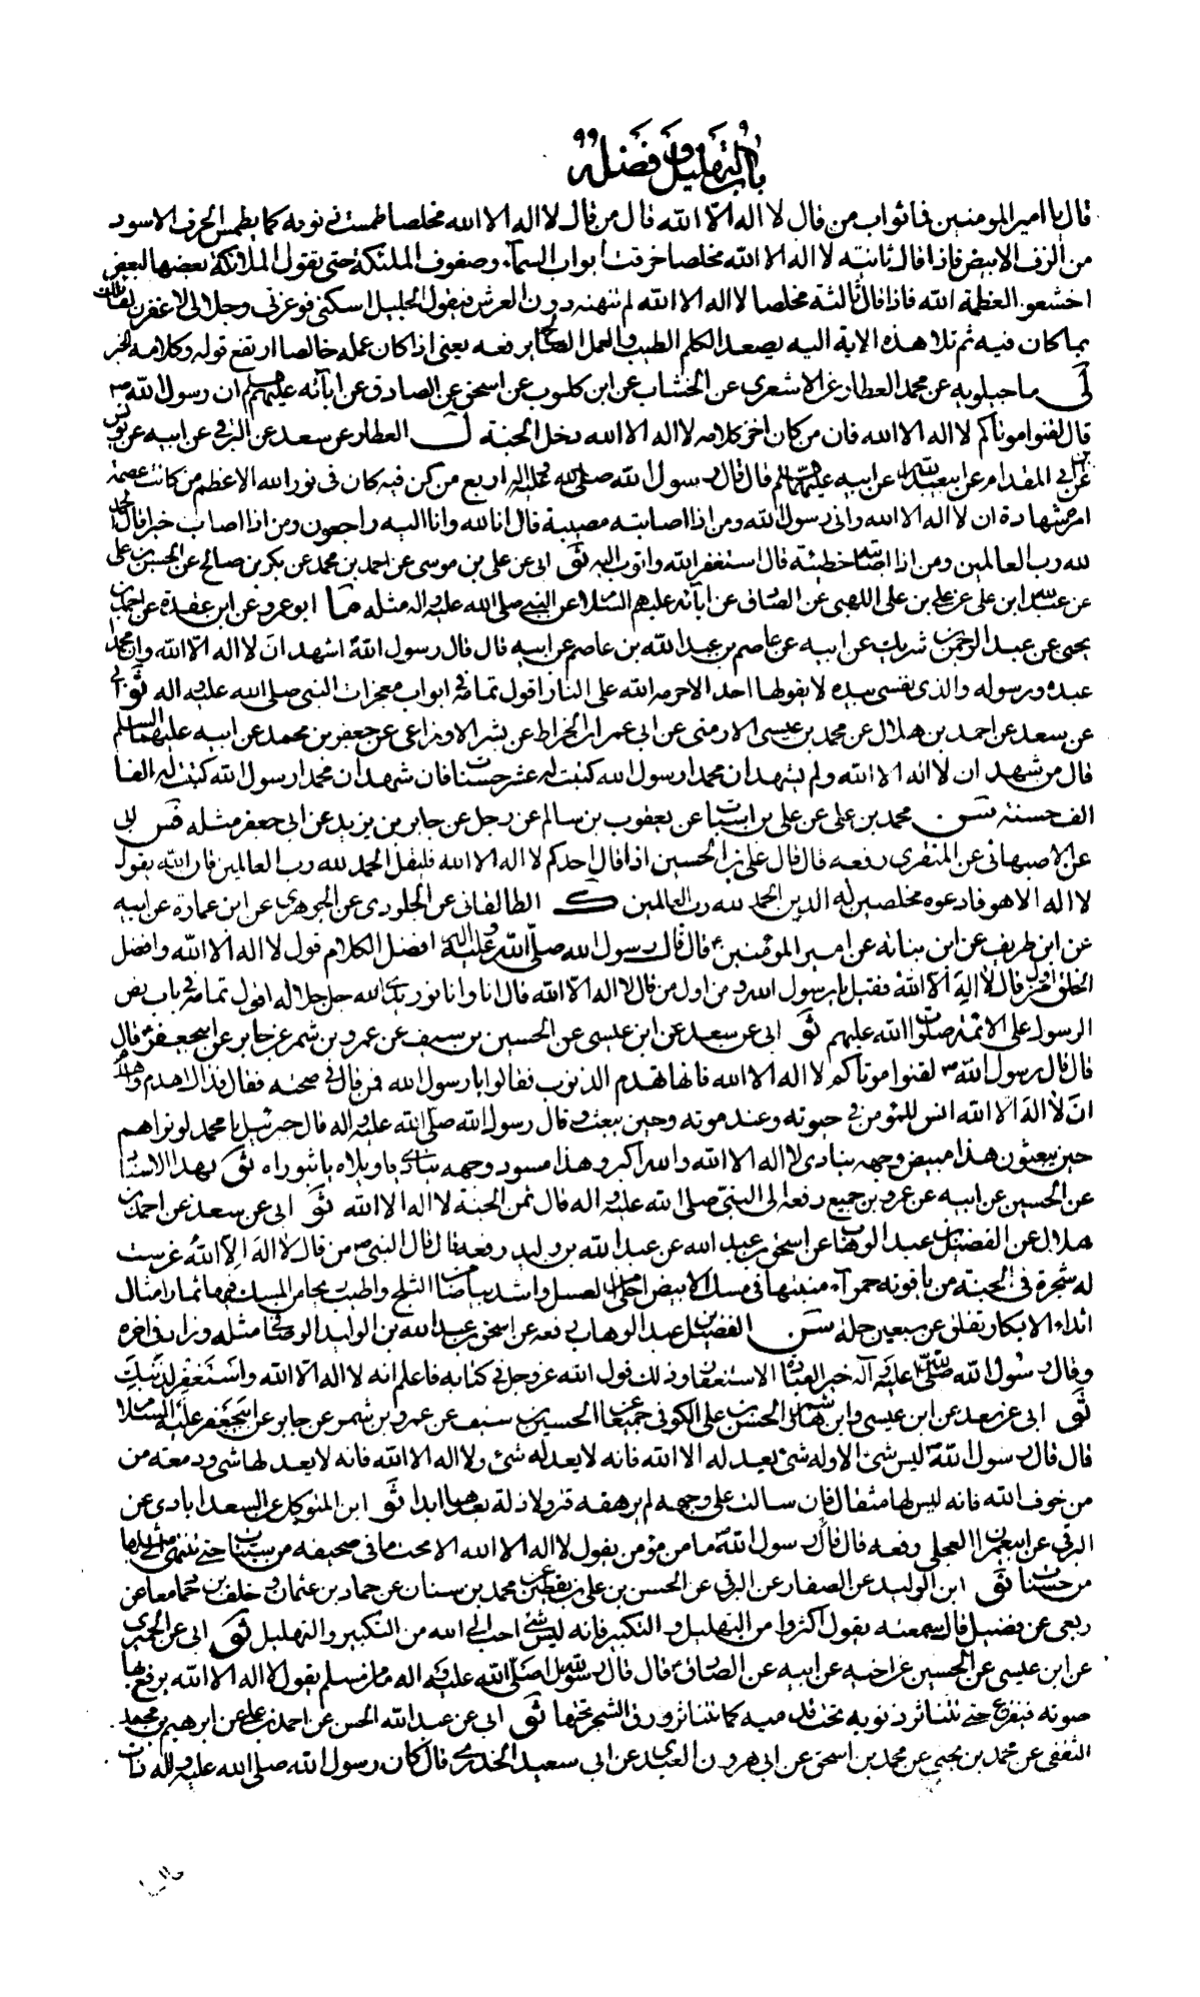 باب التهليل وفضله
قال يا امير المومنين فما ثواب من قال لا اله الا الله قال من قال لا اله الا الله مخلصا طمست ذنوبه كما يطمس الحرف الاسود
من الرق الابيض فاذا قال ثانية لا اله الا الله مخلصا خرقت ابواب السمآء وصفوف الملئكة حتى يقول الملائكة بعضها لبعض
اخشعوا لعظمة الله فاذا قال ثالثة مخلصا لا اله الا الله لم تنهنه دون العرش فيقول الجليل اسكنى فوعزتى وجلالى لاغفرن لقائلك
بما كان فيه ثم تلا هذه الاية اليه يصعد الكلم الطيب والعمل الصالح يرفعه يعنى اذا كان عمله خالصا ارتفع قوله وكلامه الخبر
لى ماجيلويه عن محمد العطار عن الاشعرى عن الخشاب عن ابن كلوب عن اسحق عن الصادق عن ابآئه عليهم ان رسول الله ص
قال لقنوا موتاكم لا اله الا الله فان من كان اخر كلامه لا اله الا الله دخل الجنة ل العطار عن سعد عن البرقى عن ابيه عن يونس
عن ابى المقدام عن ابيعبدالله عن ابيه عليهما قال قال رسول الله صلى الله عليه واله اربع من كن فيه كان فى نور الله الاعظم من كانت عصمة
امره شهادة ان لا اله الا الله وانى رسول الله ومن اذا اصابته مصيبة قال انا لله وانا اليه راجعون ومن اذا اصاب خيرا قال الحمد
لله رب العالمين ومن اذا اصاب خطيئة قال استغفر الله واتوب اليه ثو ابى عن على بن موسى عن احمد بن محمد عن بكر بن صالح عن الحسن بن على
عن عبدالله ابن على عن على بن على اللهبى عن الصادق عن ابآئه عليهم السلام عن النبى صلى الله عليه واله مثله ما ابو عمرو عن ابن عقدة عن احمد بن
يحيى عن عبد الرحمن شريك عن ابيه عن عاصم بن عبد الله بن عاصم عن ابيه قال قال رسول الله اشهد ان لا اله الا الله وان محمدا
عبده ورسوله والذى نفسى بيده لا يقولها احد الا حرمه الله على النار اقول تمامه فى ابواب معجزات النبى صلى الله عليه واله ثو ابى
عن سعد عن احمد بن هلال عن محمد بن عيسى الارمنى عن ابى عمران الخراط عن بشر الاوزاعى عن جعفر بن محمد عن ابيه عليهما السلم
قال من شهد ان لا اله الا الله ولم يشهد ان محمدا رسول الله كتبت له عشر حسنات فان شهد ان محمدا رسول الله كتبت له الفا
الف حسنة سن محمد بن على عن على بن اسباط عن يعقوب بن سالم عن رجل عن جابر بن يزيد عن ابى جعفر مثله فس ابى
عن الاصبهانى عن المنقرى رفعه قال قال على بن الحسين اذا قال احدكم لا اله الا الله فليقل الحمد لله رب العالمين فان الله يقول
لا اله الا هو فادعوه مخلصين له الدين الحمد لله رب العالمين ك الطالقانى عن الجلودى عن الجوهرى عن ابن عمارة عن ابيه
عن ابن طريف عن ابن نباته عن امير المؤمنين قال قال رسول الله صلى الله عليه واله افضل الكلام قول لا اله الا الله وافضل
الخلق اول من قال لا اله الا الله فقيل يا رسول الله ومن اول من قال لا اله الا الله قال انا وانا نور بين يدى الله جل جلاله اقول تمامه فى باب نص
الرسول على الائمة صلوات الله عليهم ثو ابى عن سعد عن ابن عيسى عن الحسين بن سيف عن عمرو بن شمر عن جابر عن ابيجعفر قال
قال قال رسول الله ص لقنوا موتاكم لا اله الا الله فانها تهدم الذنوب فقالوا يا رسول الله فمن قال فى صحته فقال فذاك اهدم واهدم
ان لا اله الا الله انس للمؤمن فى حيوته وعند موته وحين يبعث وقال رسول الله صلى الله عليه واله قال جبرئيل يا محمد لو تراهم
حين يبعثون هذا مبيض وجهه ينادى لا اله الا الله والله اكبر وهذا مسود وجهه ينادى يا ويلاه يا ثبوراه ثو بهذا الاسناد
عن الحسين عن ابيه عن عمرو بن جميع رفعه الى النبى صلى الله عليه واله قال ثمن الجنة لا اله الا الله ثو ابى عن سعد عن احمد بن
هلال عن الفضيل بن عبد الوهاب عن اسحق بن عبد الله عن عبد الله بن وليد رفعه قال قال النبى ص من قال لا اله الا الله غرست
له شجرة فى الجنة من ياقوته حمرآء منبتها فى مسك ابيض احلى من العسل واشد بياضا من الثلج واطيب ريحا من المسك فيها ثمار امثال
اثداء الابكار تفلق عن سبعين حلة سن الفضيل بن عبد الوهاب رفعه عن اسحق بن عبد الله بن الوليد الوصافى مثله وزاد فى اخره
وقال رسول الله صلى الله عليه وآله خير العبادة الاستغفار وذلك قول الله عز وجل فى كتابه فاعلم انه لا اله الا الله واستغفر لذنبك
ثو ابى عن سعد عن ابن عيسى وابن هاشم والحسن بن على الكوفى جميعا عن الحسين بن سيف عن عمرو بن شمر عن جابر عن ابيجعفر عليه السلام
قال قال رسول الله ليس شئ الا وله شئ يعدله الا الله فانه لا يعدله شئ ولا اله الا الله فانه لا يعدلها شئ ودمعة من
من خوف الله فانه ليس لها مثقال فان سالت على وجهه لم يرهقه قتر ولا ذلة بعدها ابدا ثو ابن المتوكل عن السعدابادى عن
البرقى عن ابيعمران العجلى رفعه قال قال رسول الله ما من مؤمن يقول لا اله الا الله الا محت ما فى صحيفته من سيئات حتى تنتهى الى مثلها
من حسنات ثو ابن الوليد عن الصفار عن البرقى عن الحسن بن على بن يقطين عن محمد بن سنان عن حماد بن عثمان وخلف بن حماد معا عن
ربعى عن فضيل قال سمعته يقول اكثروا من التهليل والتكبير فانه ليس شئ احب الى الله من التكبير والتهليل ثو ابى عن الحميرى
عن ابن عيسى عن الحسين عن اخيه عن ابيه عن الصادق قال قال رسول الله صلى الله عليه واله ما من مسلم يقول لا اله الا الله يرفع بها
صوته فيفرغ حتى تتناثر ذنوبه تحت قدميه كما يتناثر ورق الشجر تحتها ثو ابى عن عبد الله الحسن عن احمد بن على عن ابرهيم بن محمد
الثقفى عن محمد بن يحيى عن محمد بن اسحق عن ابى هرون العبدى عن ابى سعيد الخدرى قال كان رسول الله صلى الله عليه واله ذات